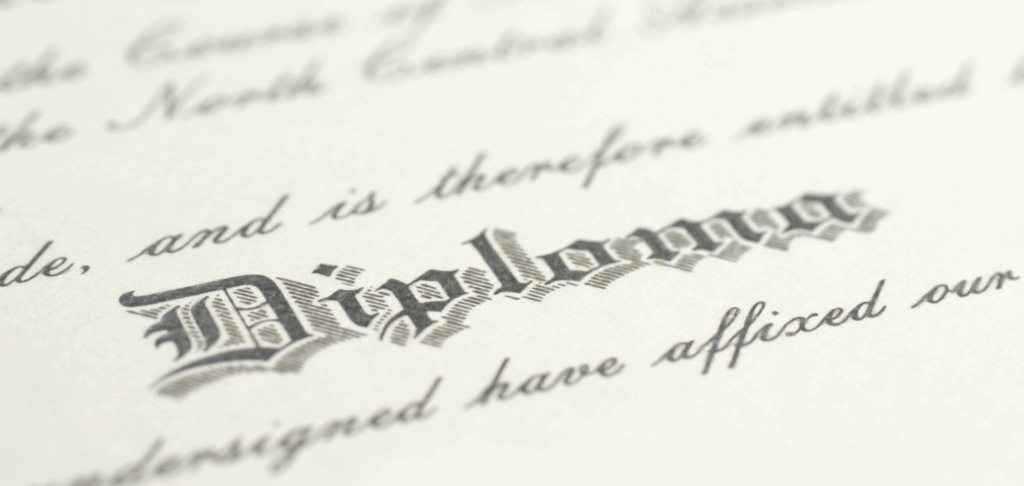 the Course of
the North Central
de, and is therefore entitled
Diploma
undersigned have affixed our